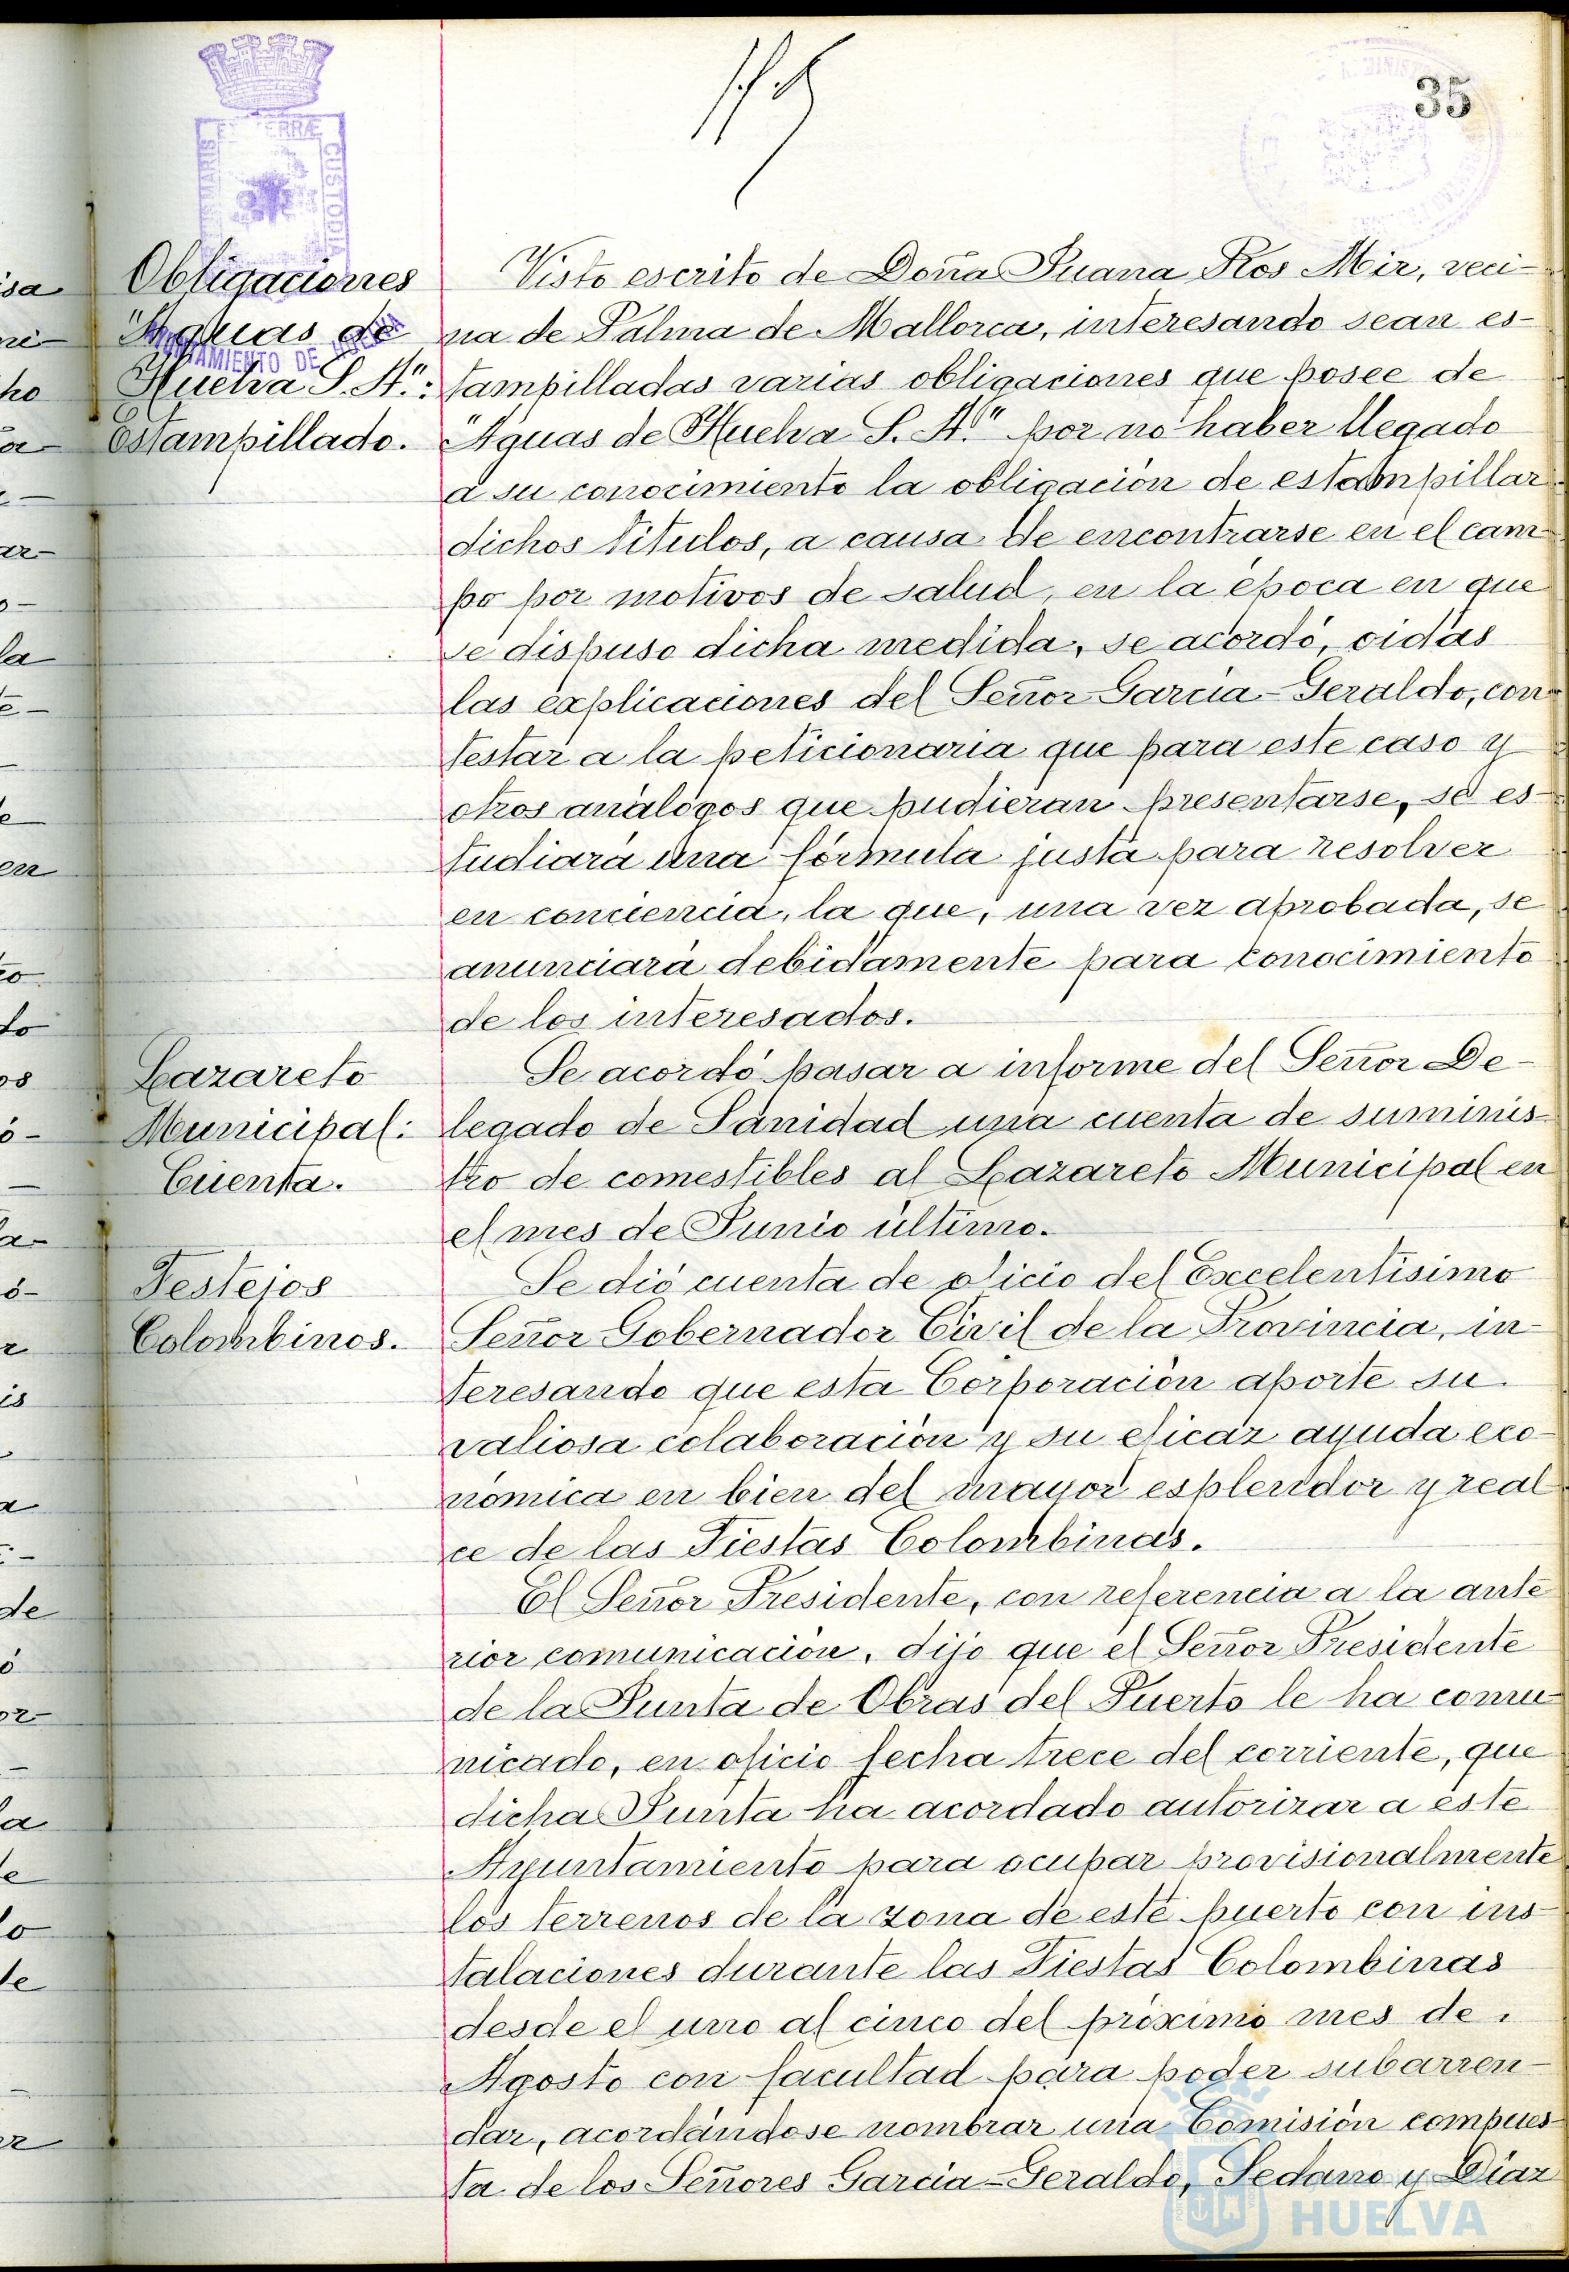 35
Obligaciones
"Aguas de
Huelva S. A.":
Estampillado.
Visto escrito de Doña Juana Ros Mir, veci-
na de Palma de Mallorca, interesando sean es-
tampilladas varias obligaciones que posee de
"Aguas de Huelva S. A." por no haber llegado
a su conocimiento la obligación de estampillar
dichos títulos, a causa de encontrarse en el cam-
po por motivos de salud, en la época en que
se dispuso dicha medida, se acordó, oidas
las explicaciones del Señor Garcia-Geraldo, con-
testar a la peticionaria que para este caso y
otros análogos que pudieran presentarse, se es-
tudiará una fórmula justa para resolver
en conciencia, la que, una vez aprobada, se
anunciará debidamente para conocimiento
de los interesados.
Lazareto
Municipal:
Cuenta.
Se acordó pasar a informe del Señor De-
legado de Sanidad una cuenta de suminis-
tro de comestibles al Lazareto Municipal en
el mes de Junio último.
Festejos
Colombinos.
Se dió cuenta de oficio del Excelentísimo
Señor Gobernador Civil de la Provincia, in-
teresando que esta Corporación aporte su
valiosa colaboración y su eficaz ayuda eco-
nómica en bien del mayor esplendor y real-
ce de las Fiestas Colombinas.
El Señor Presidente, con referencia a la ante-
rior comunicación, dijo que el Señor Presidente
de la Junta de Obras del Puerto le ha comu-
nicado, en oficio fecha trece del corriente, que
dicha Junta ha acordado autorizar a este
Ayuntamiento para ocupar provisionalmente
los terrenos de la zona de este puerto con ins-
talaciones durante las Fiestas Colombinas
desde el uno al cinco del próximo mes de
Agosto con facultad para poder subarren-
dar, acordándose nombrar una Comisión compues-
ta de los Señores Garcia-Geraldo, Sedano y Díaz
HUELVA